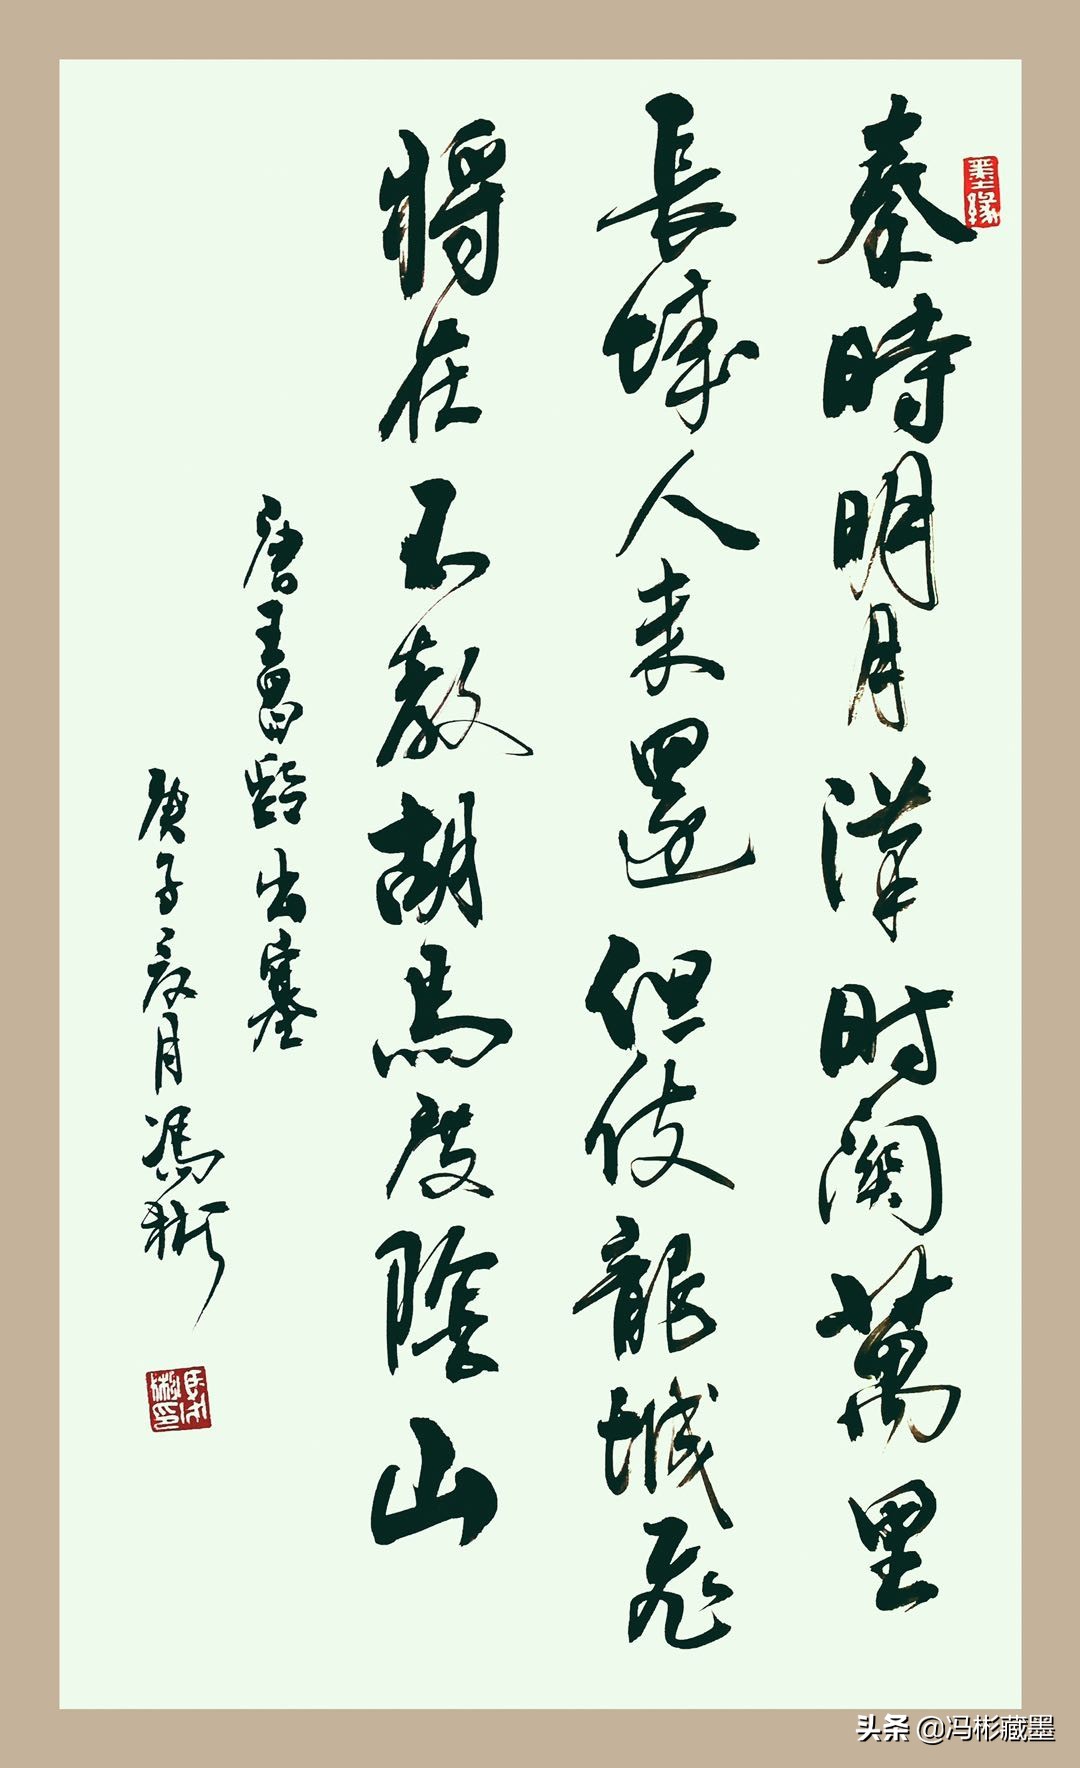 墨缘
秦時明月漢时関萬里
長城人未還但使龍城飛
將在不教胡馬度陰山
唐王昌齡出塞
庚子夏月馮彬
馮彬印
头条 @冯彬藏墨